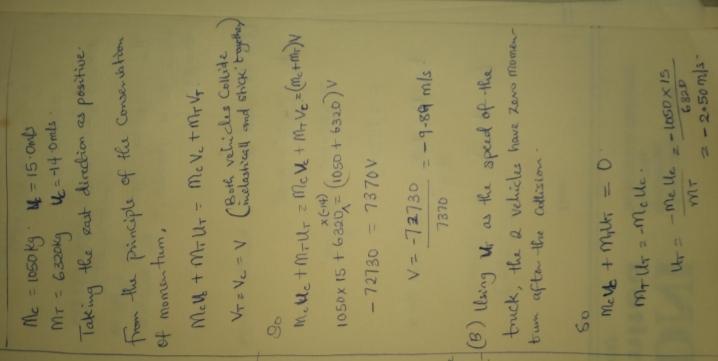 Mc = 1050 kg. Uc = 15.0m/s
MT = 6320kg Uc = -14.0m/s.
Taking the east direction as positive.
From the principle of the Conservation
of momentum,
McUc + MTUT = McVc + MTVT.
VT = Vc = V (Both vehicles Collide inelastically and stick together)
So
McUc + MTUT = McVc + MTVc = (Mc+MT)V
1050x15 + 6320x(-14) = (1050 + 6320) V
-72730 = 7370V
V = -72730 / 7370 = -9.89 m/s.
(B) Using UT as the speed of the
truck, the 2 vehicles have zero momen-
tum after the collision.
So
McUc + MTUT = 0
MTUT = -McUc.
UT = -McUc / MT = -1050 x 15 / 6320
= -2.50m/s.